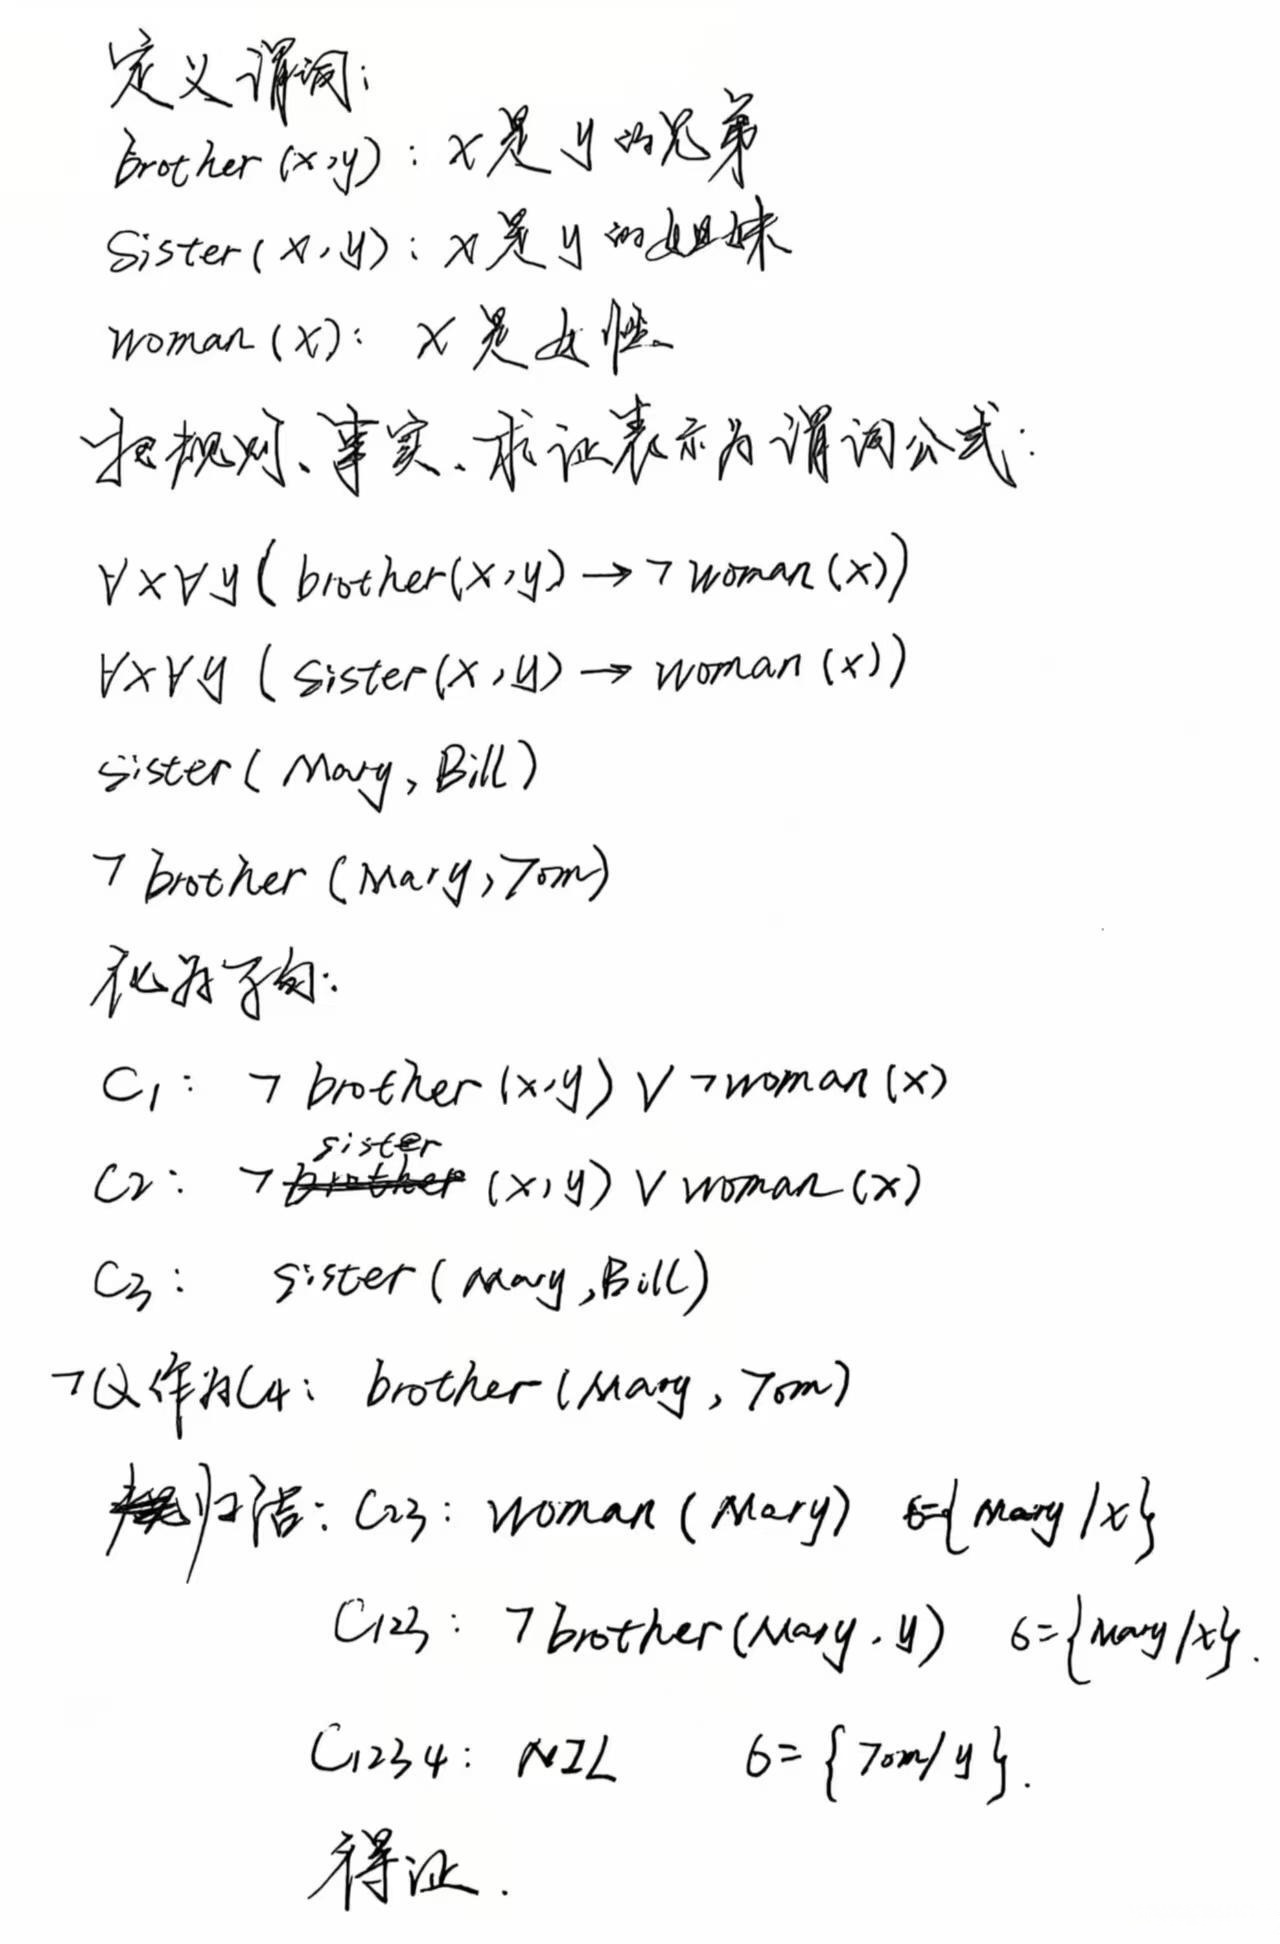 定义谓词:
brother(x,y): x是y的兄弟
Sister(x,y): x是y的姐妹
woman(x): x是女性
把规则、事实、求证表示为谓词公式:
∀x∀y(brother(x,y)→¬woman(x))
∀x∀y(sister(x,y)→woman(x))
sister(Mary,Bill)
¬brother(Mary,Tom)
化为子句:
C1: ¬brother(x,y)∨¬woman(x)
C2: ¬sister(x,y)∨woman(x)
C3: sister(Mary,Bill)
¬Q作为C4: brother(Mary,Tom)
归结: C23: woman(Mary) δ={Mary/x}
C123: ¬brother(Mary,y) δ={Mary/x}.
C1234: NIL δ={Tom/y}.
得证.